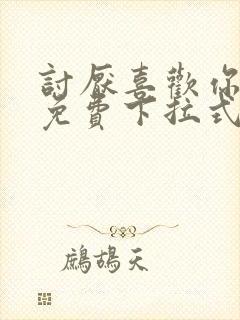 討厭喜歡你
免費下拉式
鷓鴣天